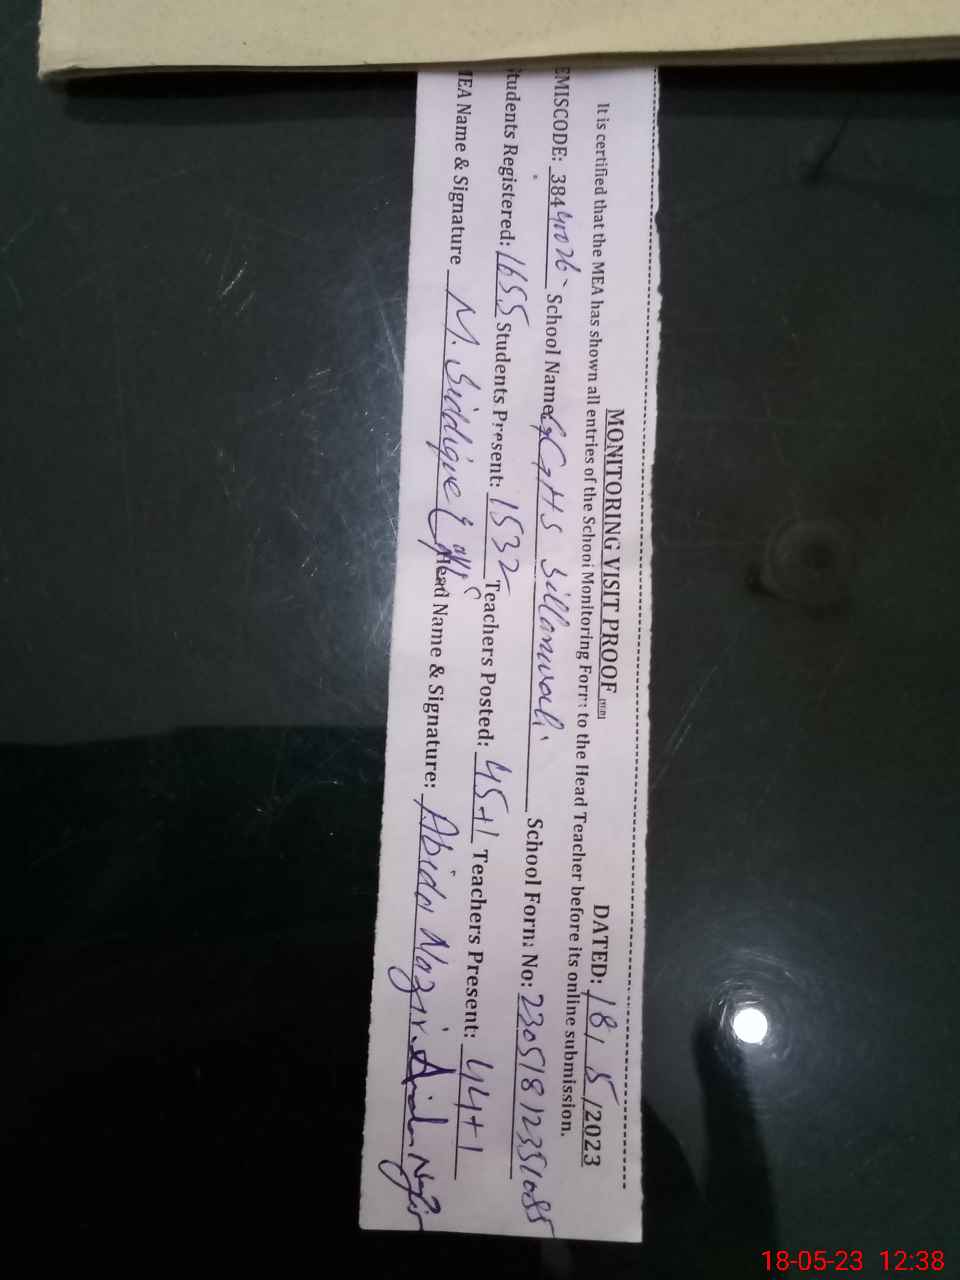 MONITORING VISIT PROOF DATED: 18/5/2023
It is certified that the MEA has shown all entries of the School Monitoring Form to the Head Teacher before its online submission.
EMISCODE: 38440026 School Name: GGHS Sillanwali School Form No: 23051812351085
Students Registered: 1655 Students Present: 1532 Teachers Posted: 45+1 Teachers Present: 44+1
MEA Name & Signature M. Siddique Head Name & Signature: Abida Nazir. Abida Nazir
18-05-23 12:38